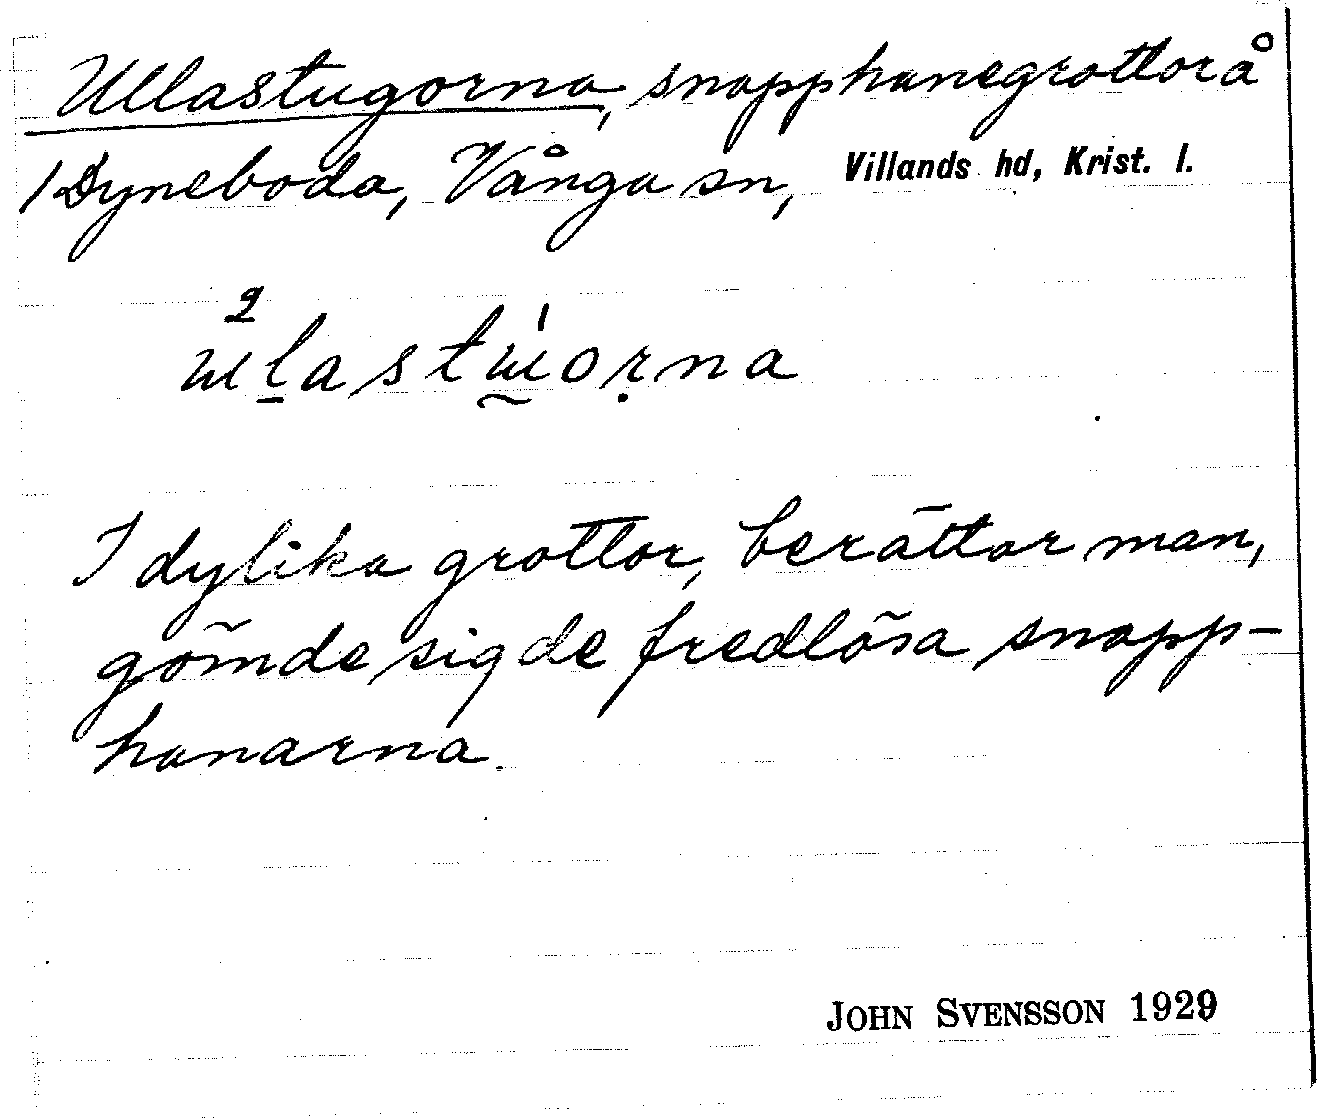 Ullastugorna, snapphanegrottor å
/ Dyneboda, Vånga sn, Villands hd, Krist. l.
I dylika grottor, berättar man,
gömde sig de fredlösa snapp-
hanarna.
JOHN SVENSSON 1929